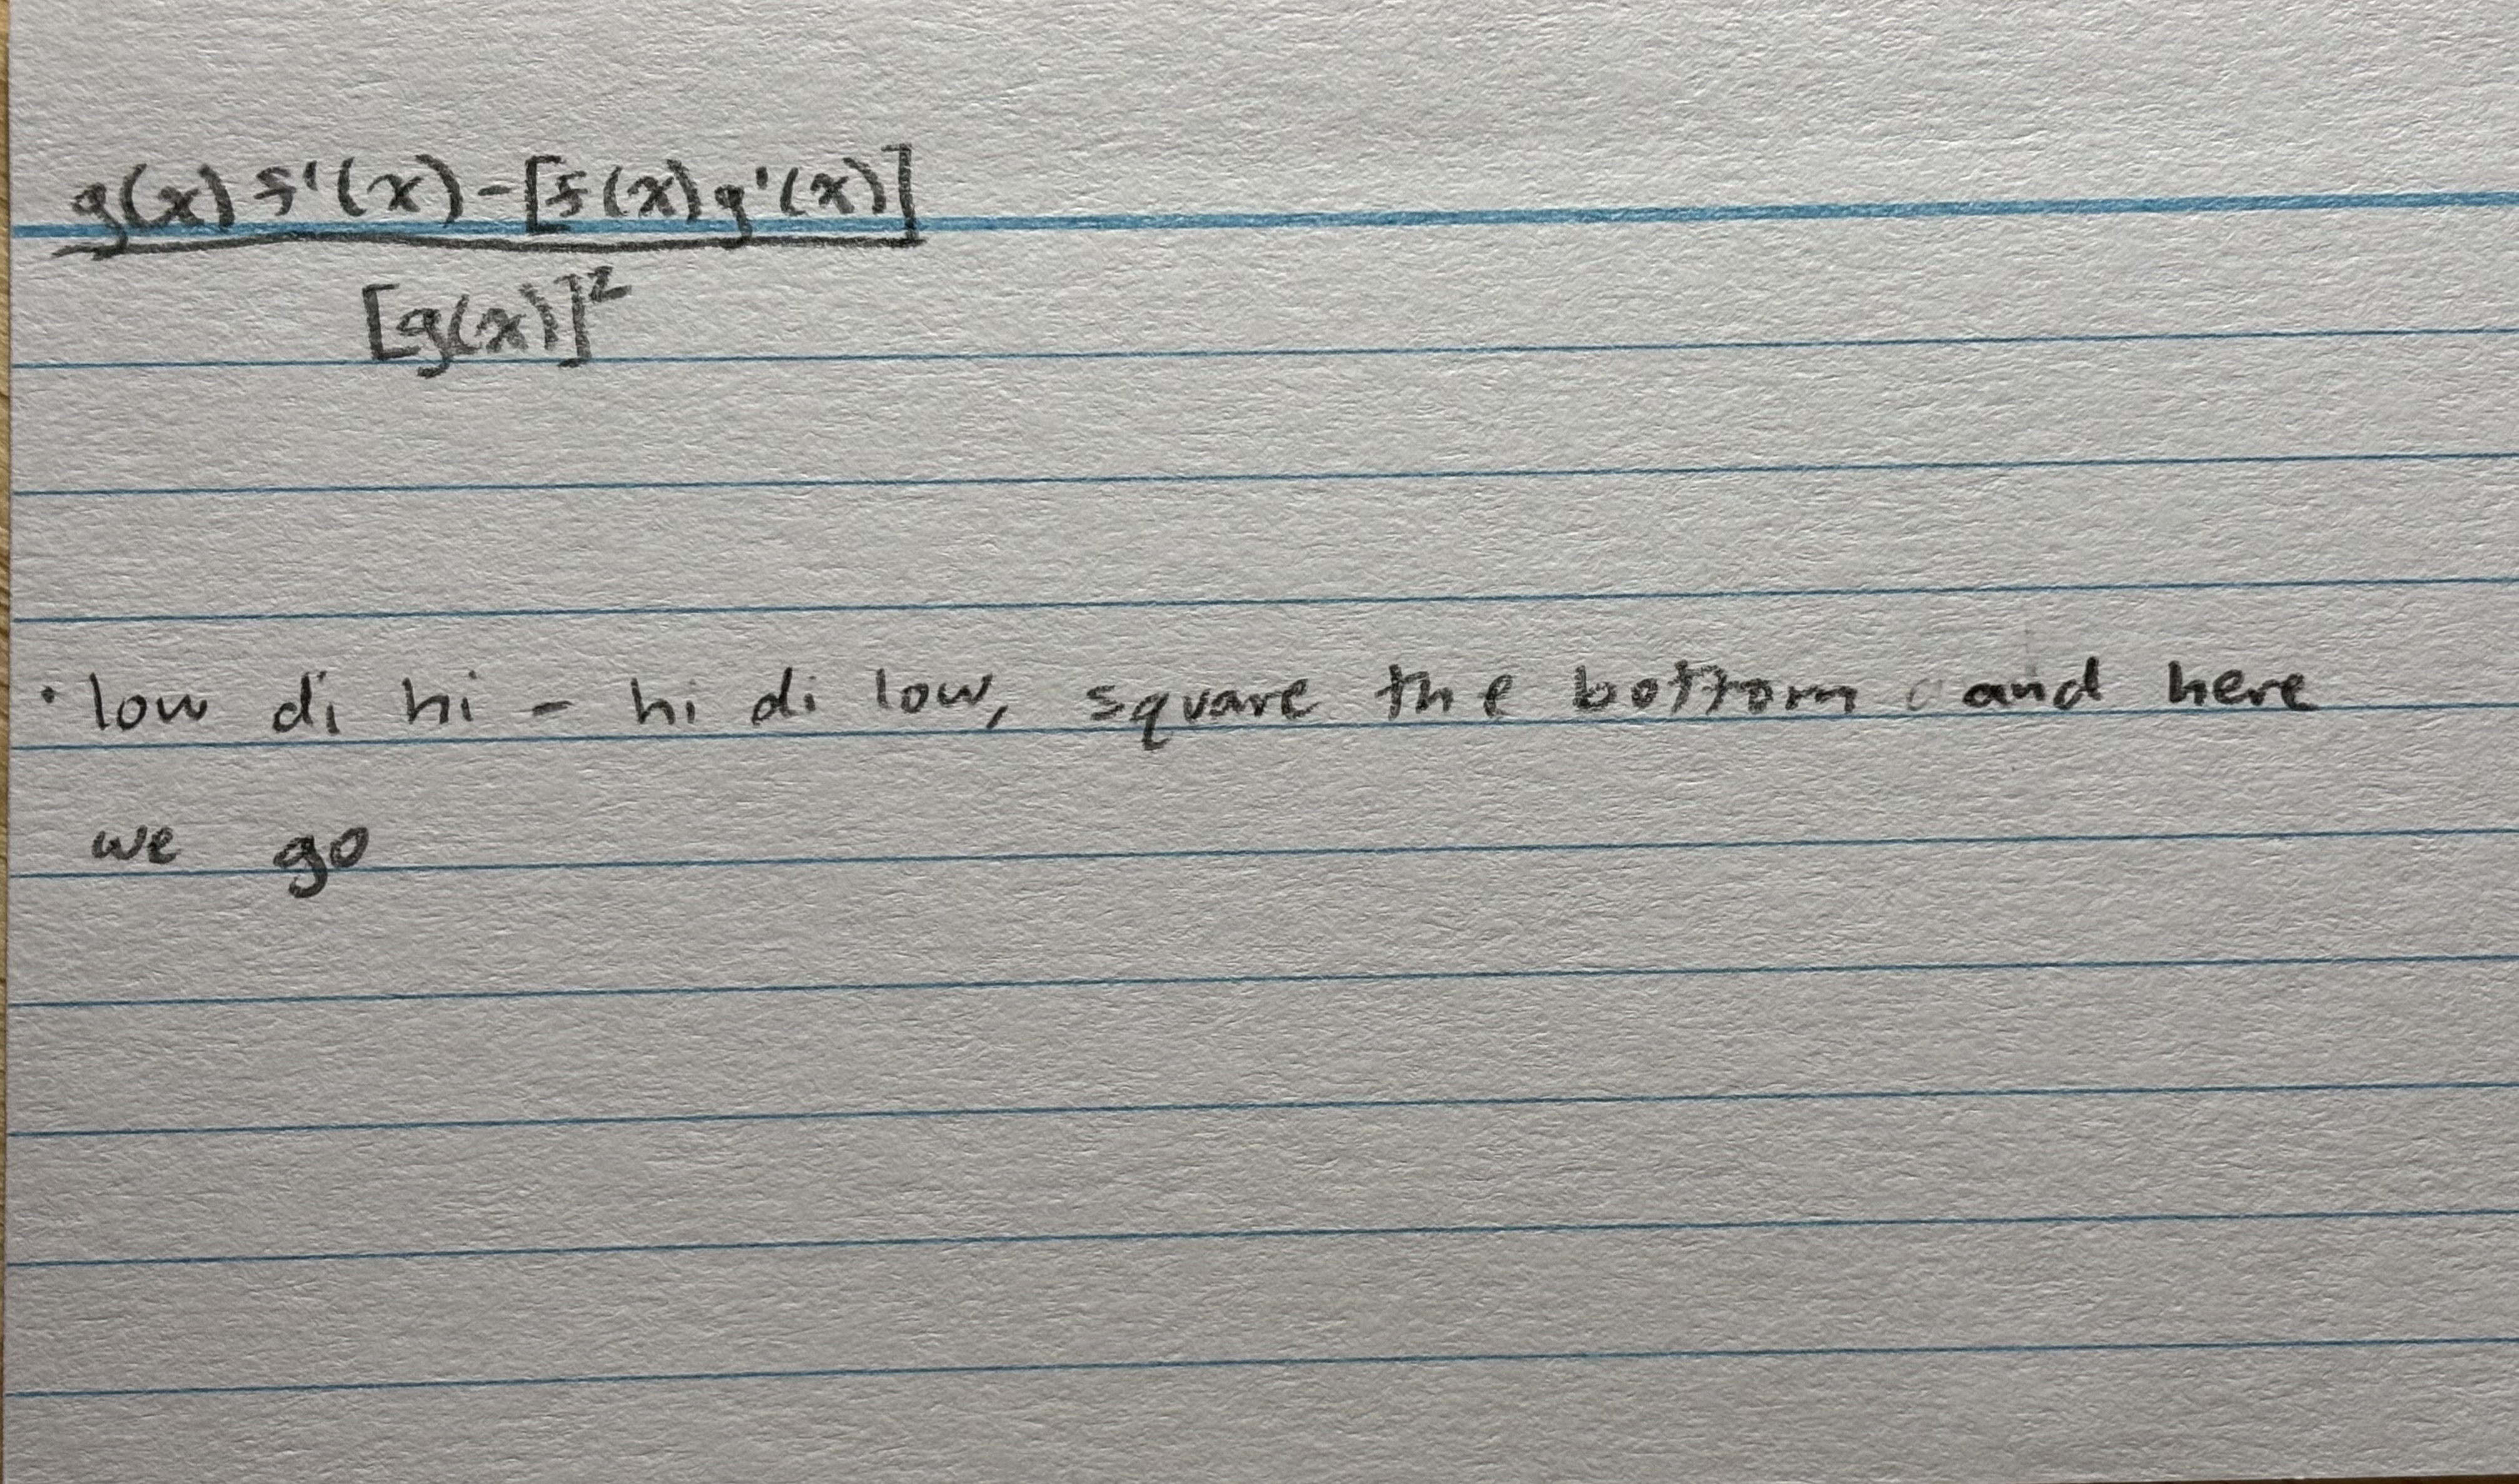 g(x) f'(x) - [f(x) g'(x)]
[g(x)]²
· low di hi - hi di low, square the bottom and here
we go